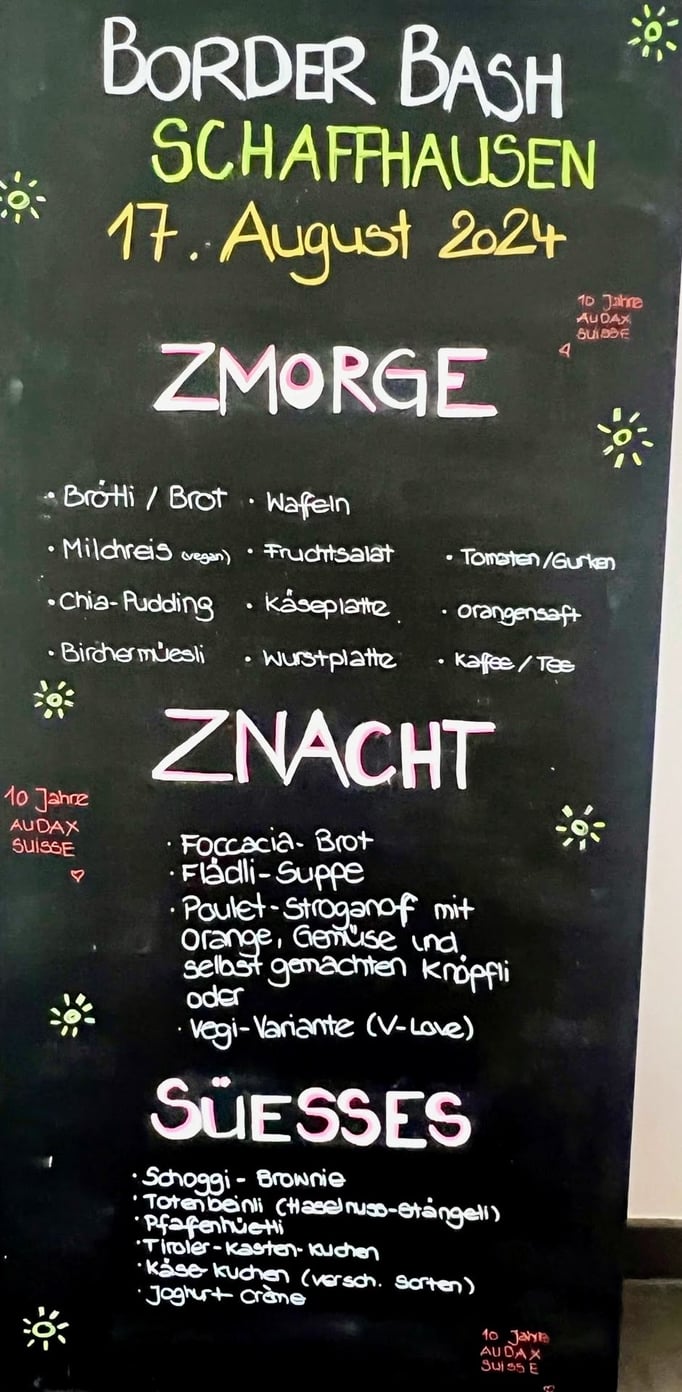 BORDER BASH
SCHAFFHAUSEN
17. August 2024
10 Jahre
AUDAX
SUISSE
ZMORGE
• Brötli / Brot • Wafeln
• Milchreis (vegan) • Fruchtsalat • Tomaten/Gurken
• Chia-Pudding • Käseplatte • Orangensaft
• Birchermüesli • Wurstplatte • Kaffee / Tee
ZNACHT
10 Jahre
AUDAX
SUISSE
• Foccacia-Brot
• Flädli-Suppe
• Poulet-Stroganof mit
Orange, Gemüse und
selbst gemachten Knöpfli
oder
• Vegi-Variante (V-Love)
SÜESSES
• Schoggi-Brownie
• Totenbeinli (Haselnuss-Stängeli)
• Pfafenhüetli
• Tiroler-Kasten-Kuchen
• Käse Kuchen (versch. Sorten)
• Joghurt Crème
10 Jahre
AUDAX
SUISSE